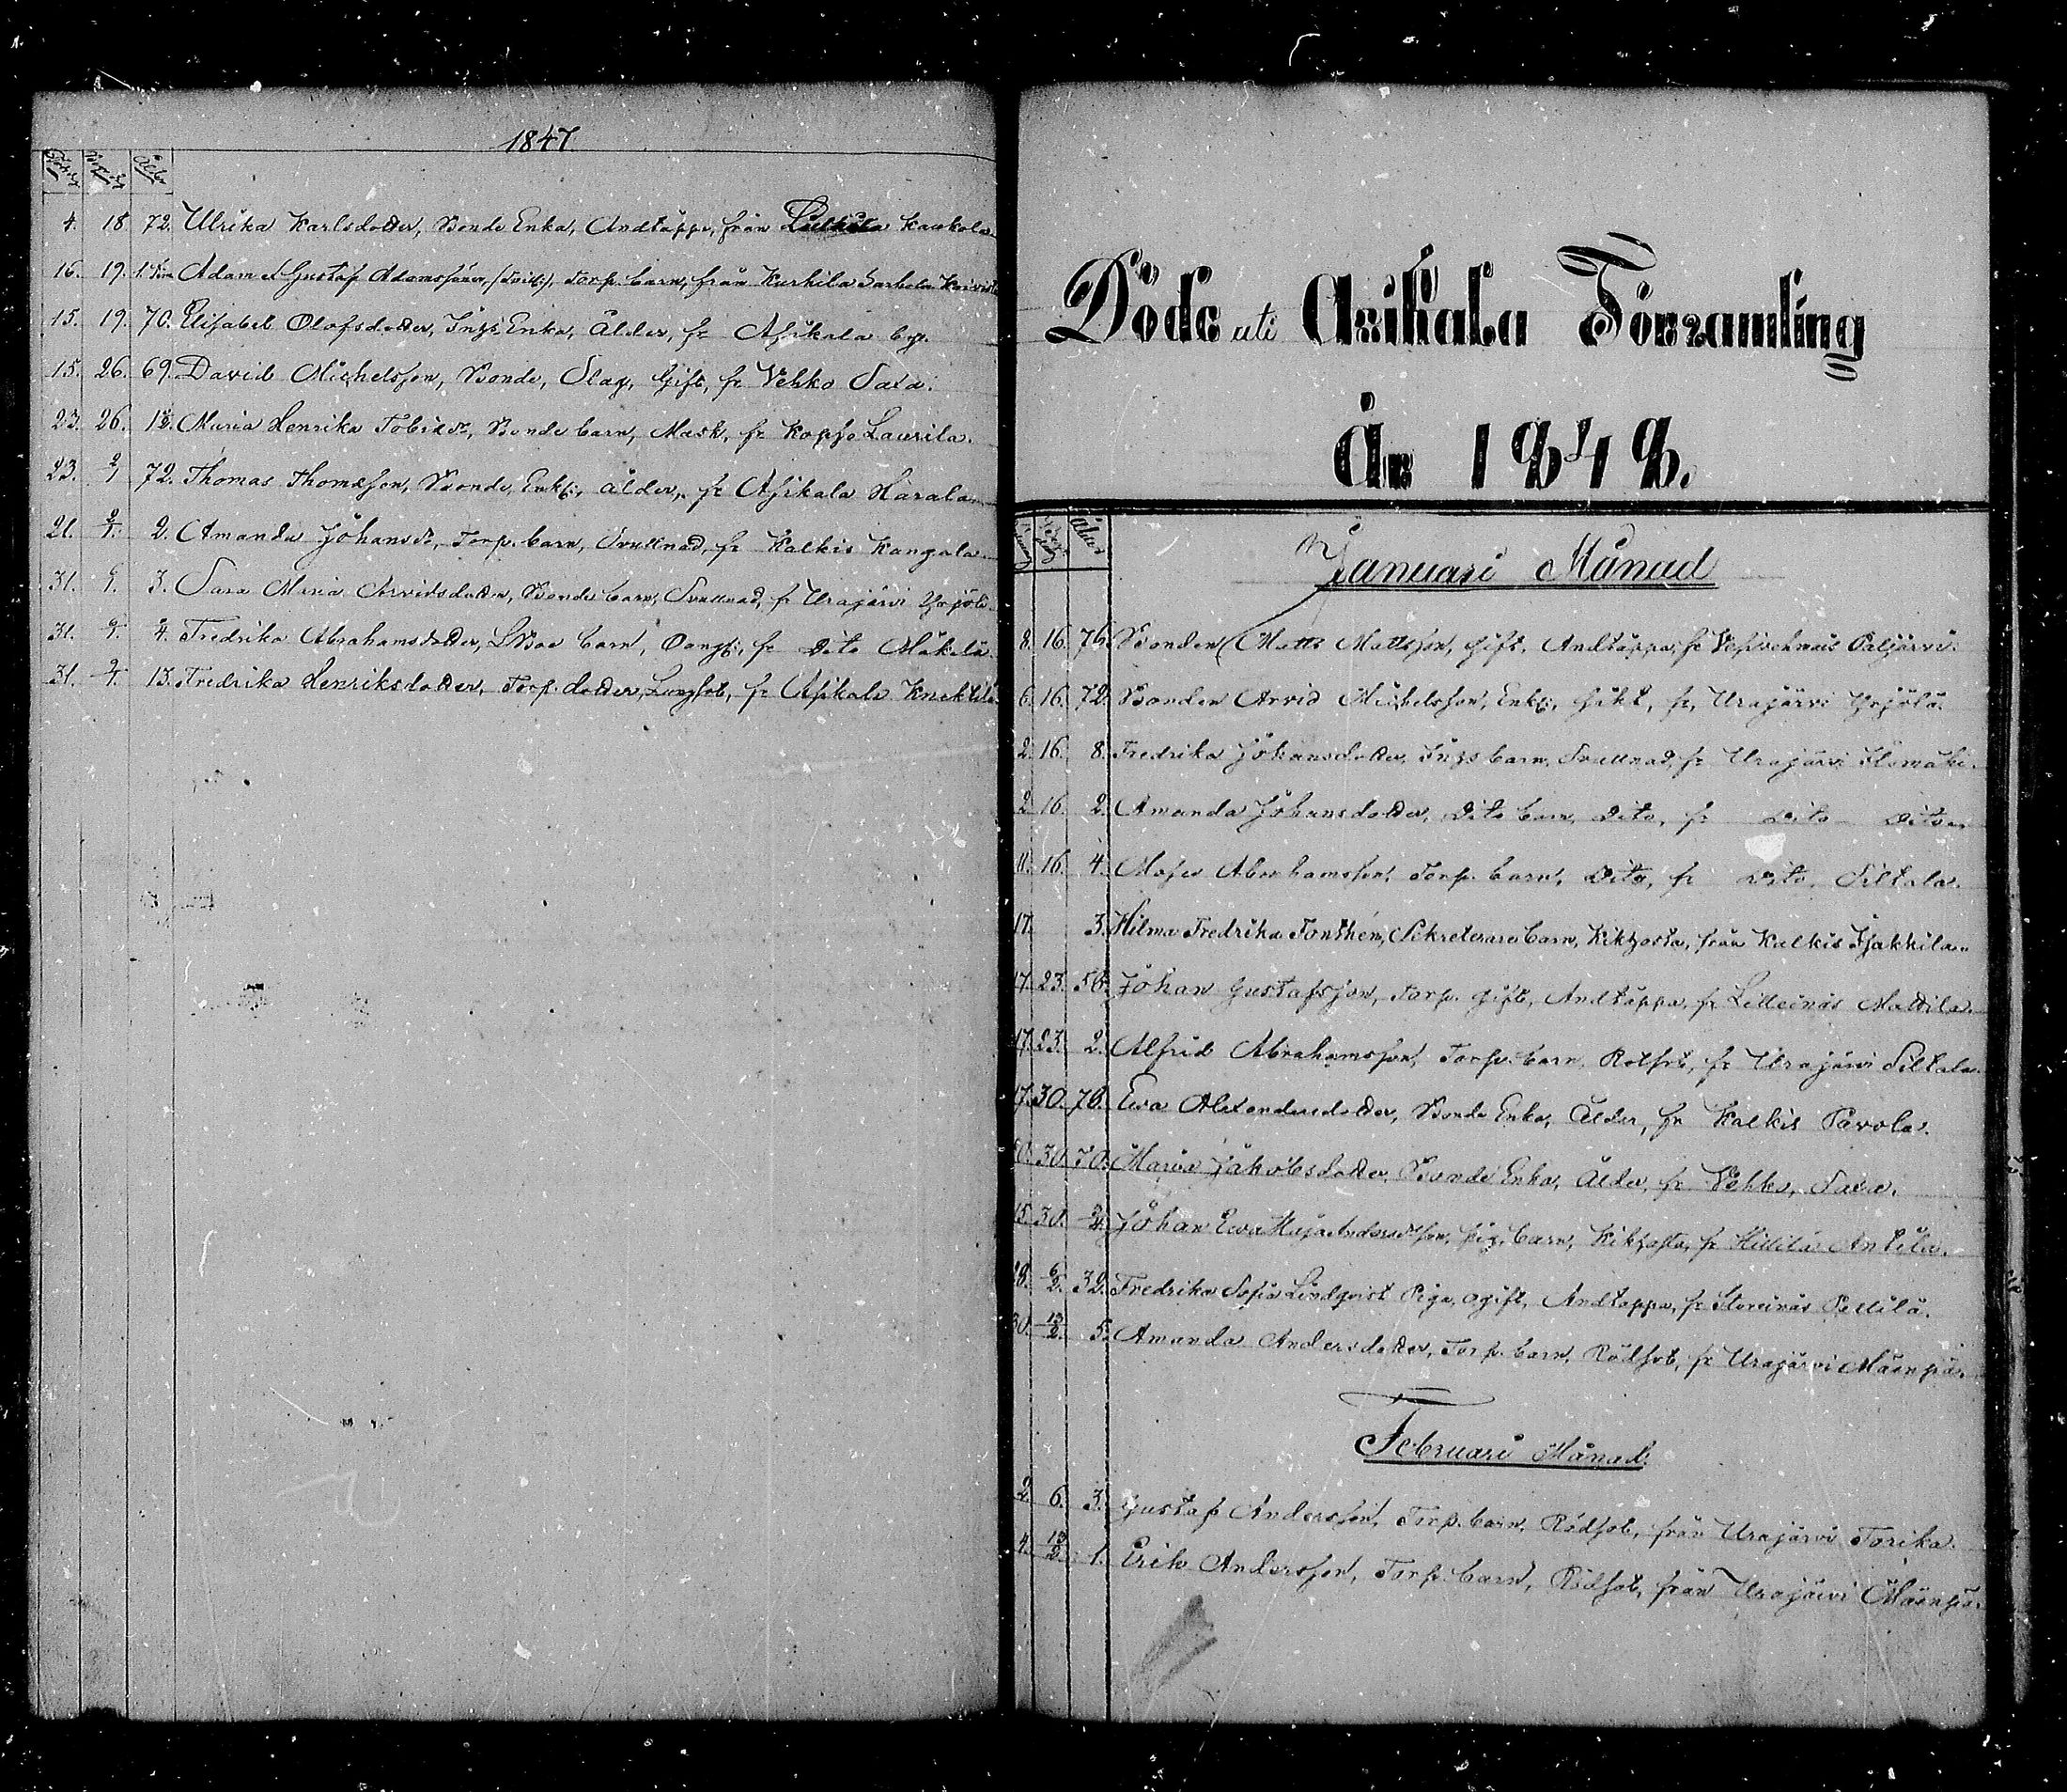 1847
4. 18. 72. Ulrika Karlsdotter, Bonde Enka, Andtäppa, från Kaukola
16. 19. Adam & Gustaf Adamssöner, Torp. barn, från Kurhila
15. 19. 70. Elisabet Olofsdotter, Inhs Enka, Ålder, fr Asikala by.
15. 26. 69. David Michelsson, Bonde, Slag, Gift, fr Vehko Saxa.
23. 26. 1½. Maria Henrika Tobiasdr, Bonde barn, Mask, fr Koppo Laurila.
23. 2/1 72. Thomas Thomasson, Bonde, Enkl:, ålder, fr Asikala Harala
21. 2/1 2. Amanda Johansdr, Torp. barn, Svullnad, fr Kalkis Kangala
31. 9/1. 3. Sara Maria Arvidsdotter, Bonde barn, Svullnad, fr Urajärvi Yrjölä
31. 9/1. 4. Fredrika Abrahamsdotter, barn, fr Dito Mäkelä.
31. 9/1. 13. Fredrika Henriksdotter, Torp. dotter, Lungsot, fr Asikala Knektilä
Döde uti Asikala Församling
År 1848.
Januari Månad
8. 16. 76. Bonden Matts Mattsson, gift, Andtäppa, fr Vesivehmais Paljärvi.
6. 16. 72. Bonden Arvid Michelsson, Enkl:, Gikt, fr, Urajärvi Yrjölä.
2. 16. 8. Fredrika Johansdotter, Inhs barn, Svullnad, fr Urajärvi Ilomäki.
2. 16. 2. Amanda Johansdotter, Dito barn, Dito, fr Dito Dito
11. 16. 4. Moses Abrahamsson, Torp. barn, Dito, fr Dito, Siltala.
17. 3. Hilma Fredrika Forsthén, Sekreterare barn, Kikhosta, från Kalkis
17. 23. 56. Johan Gustafsson, Torp. gift, Andtäppa, fr Lilleinäs Mattila.
17. 23. 2. Alfrid Abrahamsson, Torp. barn, Rotsot, fr Urajärvi Siltala.
17. 30. 76. Ewa Alexandersdotter, Bonde Enka, Ålder, fr Kalkis Pavola.
30. 70. Maria Jakobsdotter, Bonde Enka, Ålder, fr Vehko, Saxa.
15. 30. Johan Ewa Maja Andersdrson, Pig. barn, Kikhosta, fr Hillilä Anttila.
28. 6/2. 32. Fredrika Sofia Lindqvist Piga, ogift, Andtäppa, fr Storeinäs Pellilä.
30. 13/2. 5. Amanda Andersdotter, Torp. barn, Rödsot, fr Urajärvi Mäenpää.
Februari Månad.
2. 6. 3. Gustaf Andersson, Torp. barn, Rödsot, från Urajärvi Torika.
4. 13/2. 1. Erik Andersson, Torp. barn, Rödsot, från Urajärvi Mäenpää.